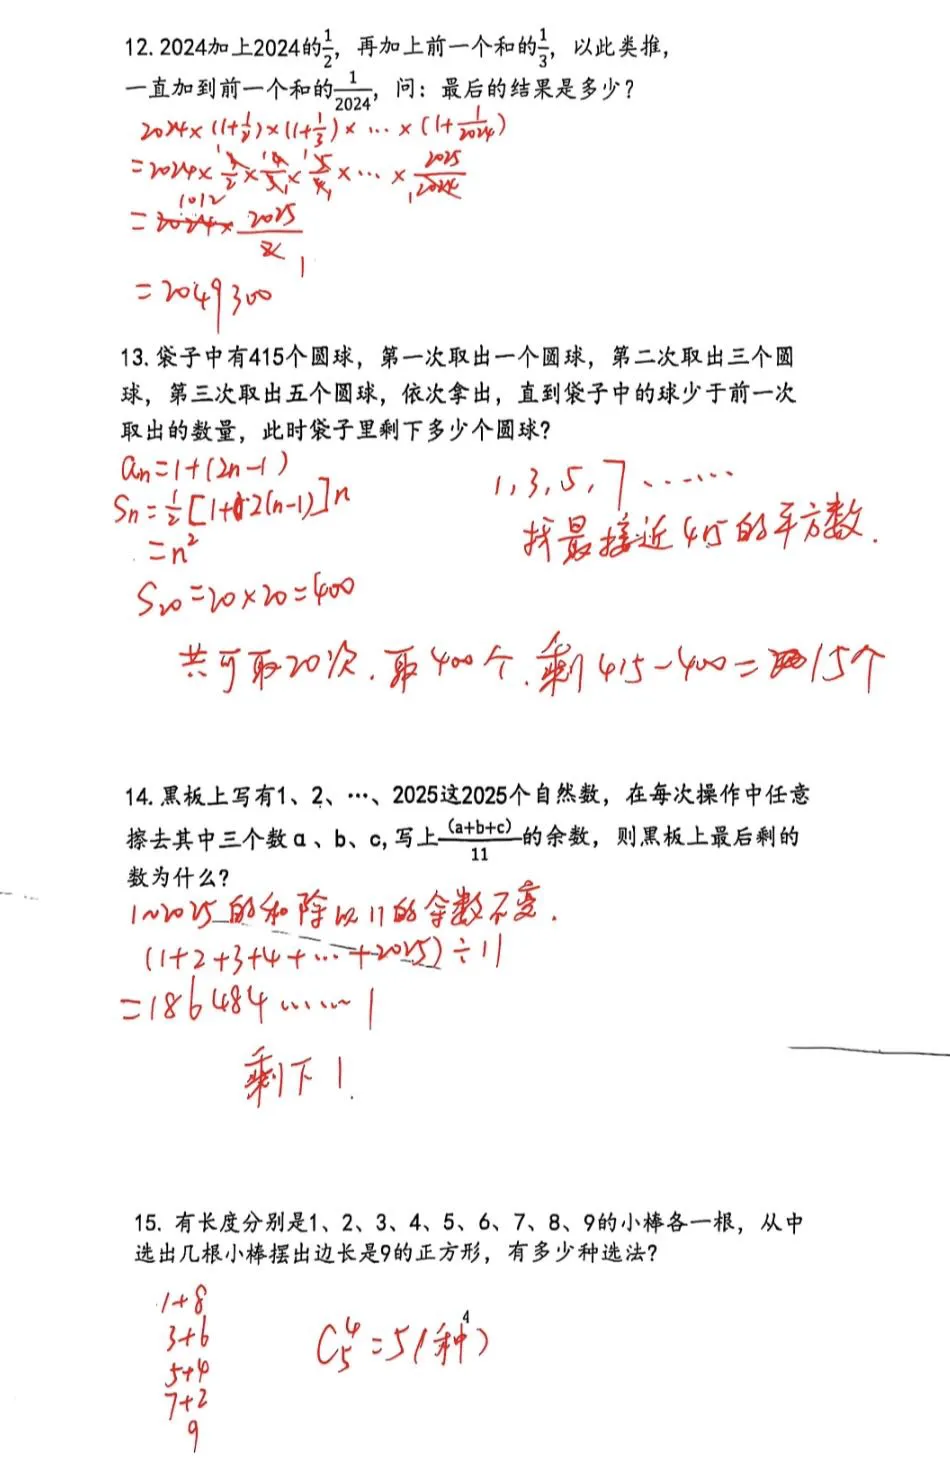 12. 2024加上2024的1/2，再加上前一个和的1/3，以此类推，
一直加到前一个和的1/2024，问：最后的结果是多少？
2024×(1+1/2)×(1+1/3)×…×(1+1/2024)
=2024×3/2×4/3×5/4×…×2025/2024
1012
=2024×2025/2
1
=2049300
13. 袋子中有415个圆球，第一次取出一个圆球，第二次取出三个圆
球，第三次取出五个圆球，依次拿出，直到袋子中的球少于前一次
取出的数量，此时袋子里剩下多少个圆球？
an=1+(2n-1)
1，3，5，7……
Sn=1/2[1+1+2(n-1)]n
找最接近415的平方数.
=n²
S20=20×20=400
共可取20次．取400个．剩415-400=15个
14. 黑板上写有1、2、…、2025这2025个自然数，在每次操作中任意
擦去其中三个数a、b、c, 写上(a+b+c)/11的余数，则黑板上最后剩的
数为什么？
1~2025的和除以11的余数不变.
(1+2+3+4+…+2025)÷11
=186484……1
剩下1.
15. 有长度分别是1、2、3、4、5、6、7、8、9的小棒各一根，从中
选出几根小棒摆出边长是9的正方形，有多少种选法？
1+8
3+6
4
C₅⁴=5(种)
5+4
7+2
9